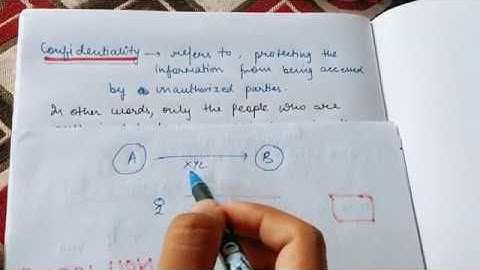 Confidentiality → refers to, protecting the
information from being accessed
by unauthorized parties.
In other words, only the people who are
A B
XYZ